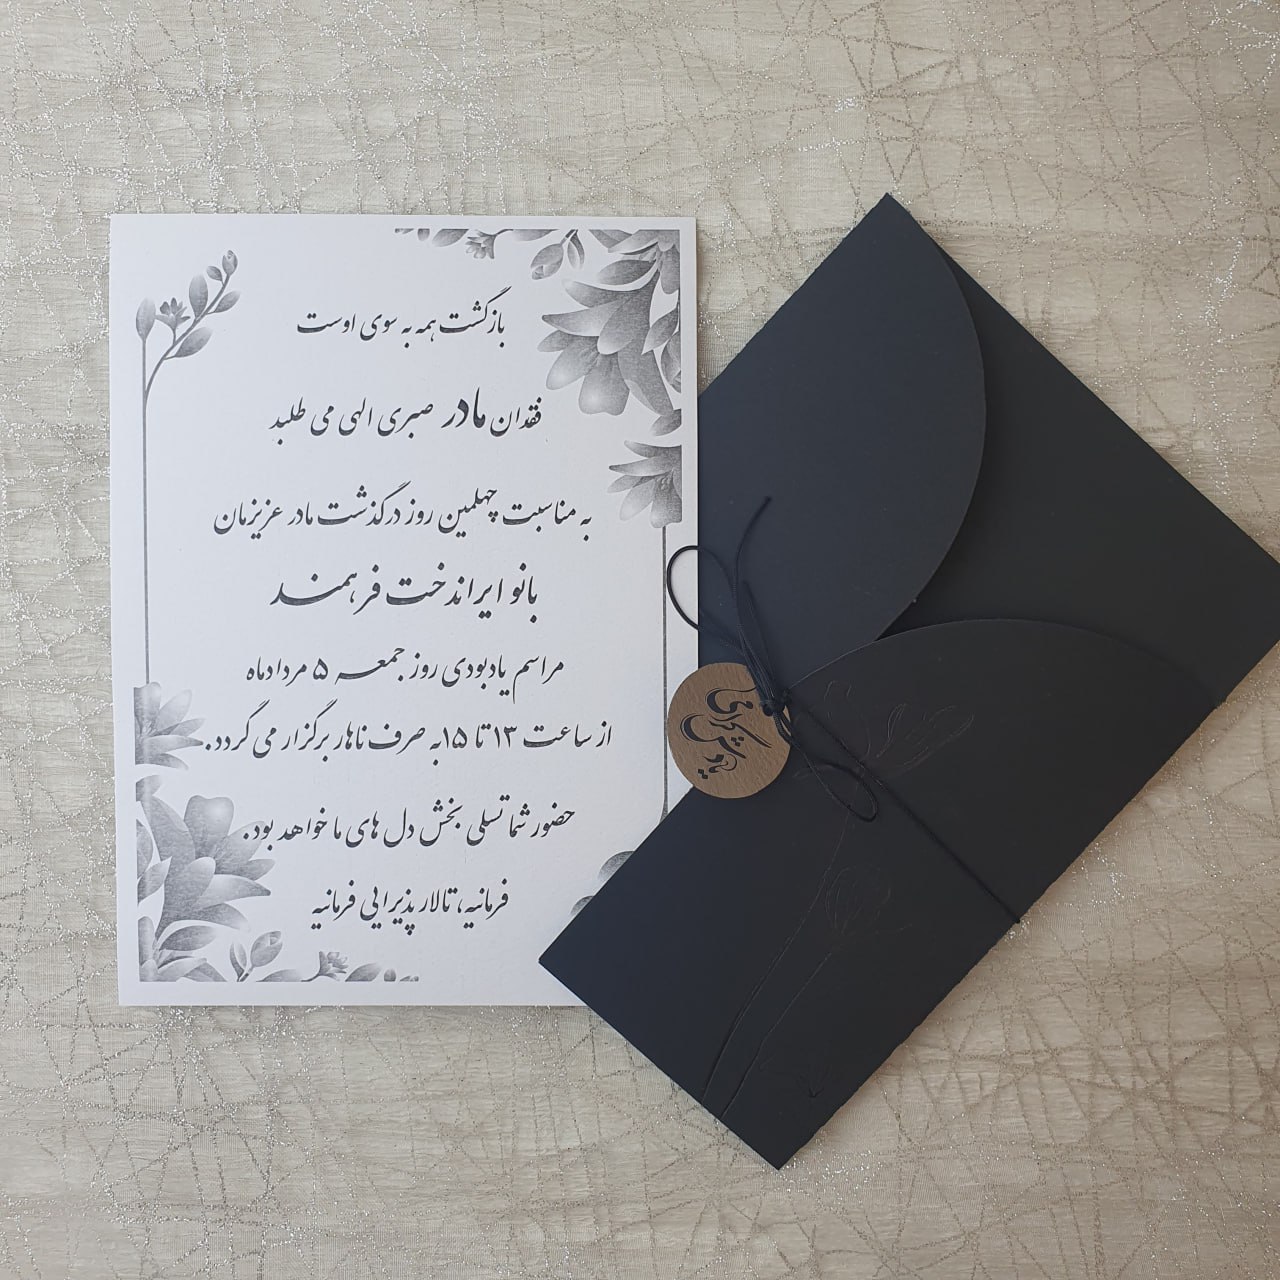 بازگشت همه به سوی اوست
فقدان مادر صبری الهی می طلبد
به مناسبت چهلمین روز درگذشت مادر عزیزمان
بانو ایراندخت فرهمند
مراسم یادبودی روز جمعه ۵ مردادماه
از ساعت ۱۳ تا ۱۵به صرف ناهار برگزار می گردد.
حضور شما تسلی بخش دل های ما خواهد بود.
فرمانیه، تالار پذیرایی فرمانیه